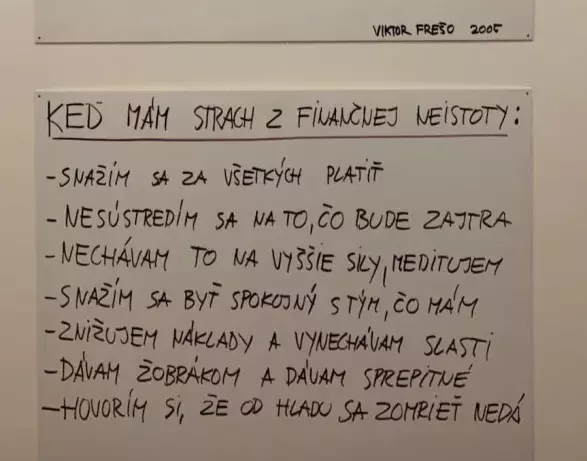 VIKTOR FREŠO 2005
KEĎ MÁM STRACH Z FINANČNEJ NEISTOTY:
-SNAŽÍM SA ZA VŠETKÝCH PLATIŤ
-NESÚSTREDÍM SA NA TO, ČO BUDE ZAJTRA
-NECHÁVAM TO NA VYŠŠIE SILY, MEDITUJEM
-SNAŽÍM SA BYŤ SPOKOJNÝ S TÝM, ČO MÁM
-ZNIŽUJEM NÁKLADY A VYNECHÁVAM SLASTI
-DÁVAM ŽOBRÁKOM A DÁVAM SPREPITNÉ
-HOVORÍM SI, ŽE OD HLADU SA ZOMRIEŤ NEDÁ